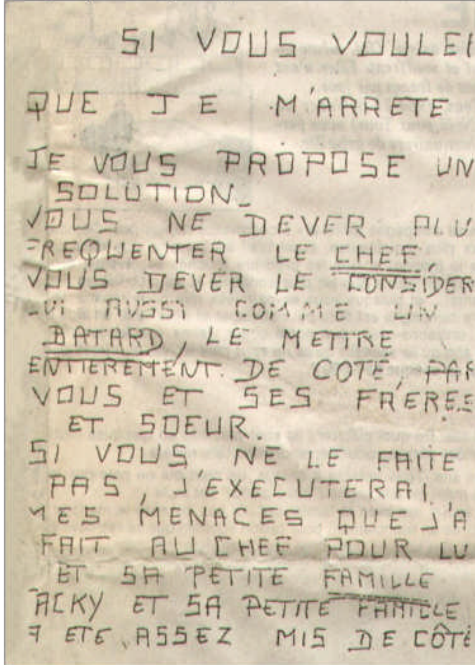 SI VOUS VOULEI
QUE JE M'ARRETE
JE VOUS PROPOSE UN
SOLUTION_
VOUS NE DEVER PLU
FREQUENTER LE CHEF,
VOUS DEVER LE CONSIDER
LUI AUSSI COMME UN
BATARD, LE METTRE
ENTIEREMENT DE COTE, PAR
VOUS ET SES FRERES
ET SOEUR.
SI VOUS NE LE FAITE
PAS, J'EXECUTERAI
MES MENACES QUE J'A
FAIT AU CHEF POUR LU
ET SA PETITE FAMILLE
ACKY ET SA PETITE FAMILLE
ETE ASSEZ MIS DE CÔTE